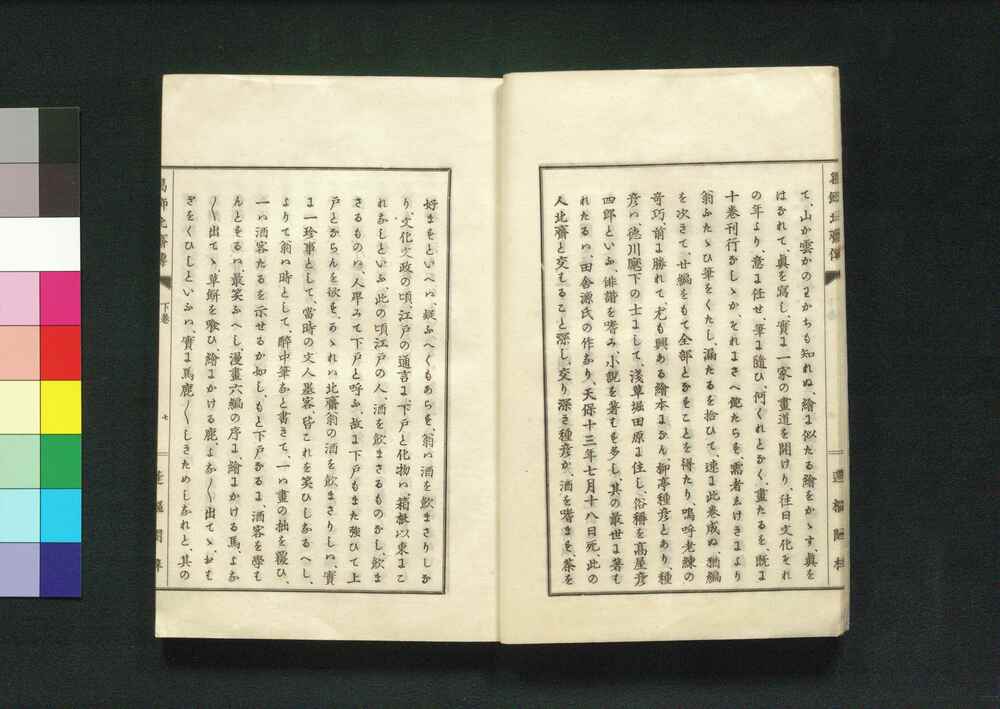 て、山か雲かのわかちも知れぬ、繪に似たる繪をかゝす、眞を
はなれて、眞を寫し、實に一家の畫道を開けり、往日文化それ
の年より、意に任せ、筆に隨ひ、何くれとなく、畫たるを、既に
十卷刊行なしゝか、それにさへ飽たらを、需者ゑけきにより
翁ふたゝひ筆をくたし、漏たるを拾ひて、速に此卷成ぬ、猶編
を次きて、廿編をもて全部となをことを得たり、嗚呼老練の
奇巧、前に勝れて、尤も興ある繪本になん、柳亭種彦とあり、種
彦ハ德川麾下の士にして、淺草堀田原に住し、俗稱を高屋彦
四郎といふ、俳諧を嗜み、小說を著もを多し、其の最世に著も
れたるハ、田舍源氏の作なり、天保十三年七月十八日死、此の
人北齋と交もること深し、交り深き種彦か、酒を嗜まを、茶を
好まをといへハ、疑ふへくもあらを、翁ハ酒を飮まさりしな
り、文化文政の頃、江戸の通言に、下戸と化物ハ、箱根以東にこ
れなしといふ、此の頃江戸の人、酒を飮まさるものなし、飮ま
さるものハ、人卑みて下戸と呼ふ、故に下戸もまた強ひて上
戸とならんを欲を、あゝれハ北齋翁の酒を飮まさりしハ、實
に一珍事として、當時の文人墨客、皆これを笑ひしなるへし、
よりて翁ハ時として、醉中筆なと書きて、一ハ畫の拙を覆ひ、
一ハ酒客たるを示せるか如し、もと下戸なるに、酒客を學も
んともるハ、最笑ふへし、漫畫六編の序に、繪にかける馬、よな
〱出てゝ、草斛を喰ひ、繪にかける鹿、よな〱出てゝ、おも
きをくひしといふハ、實に馬鹿〱しきためしなれと、其の
下卷
七